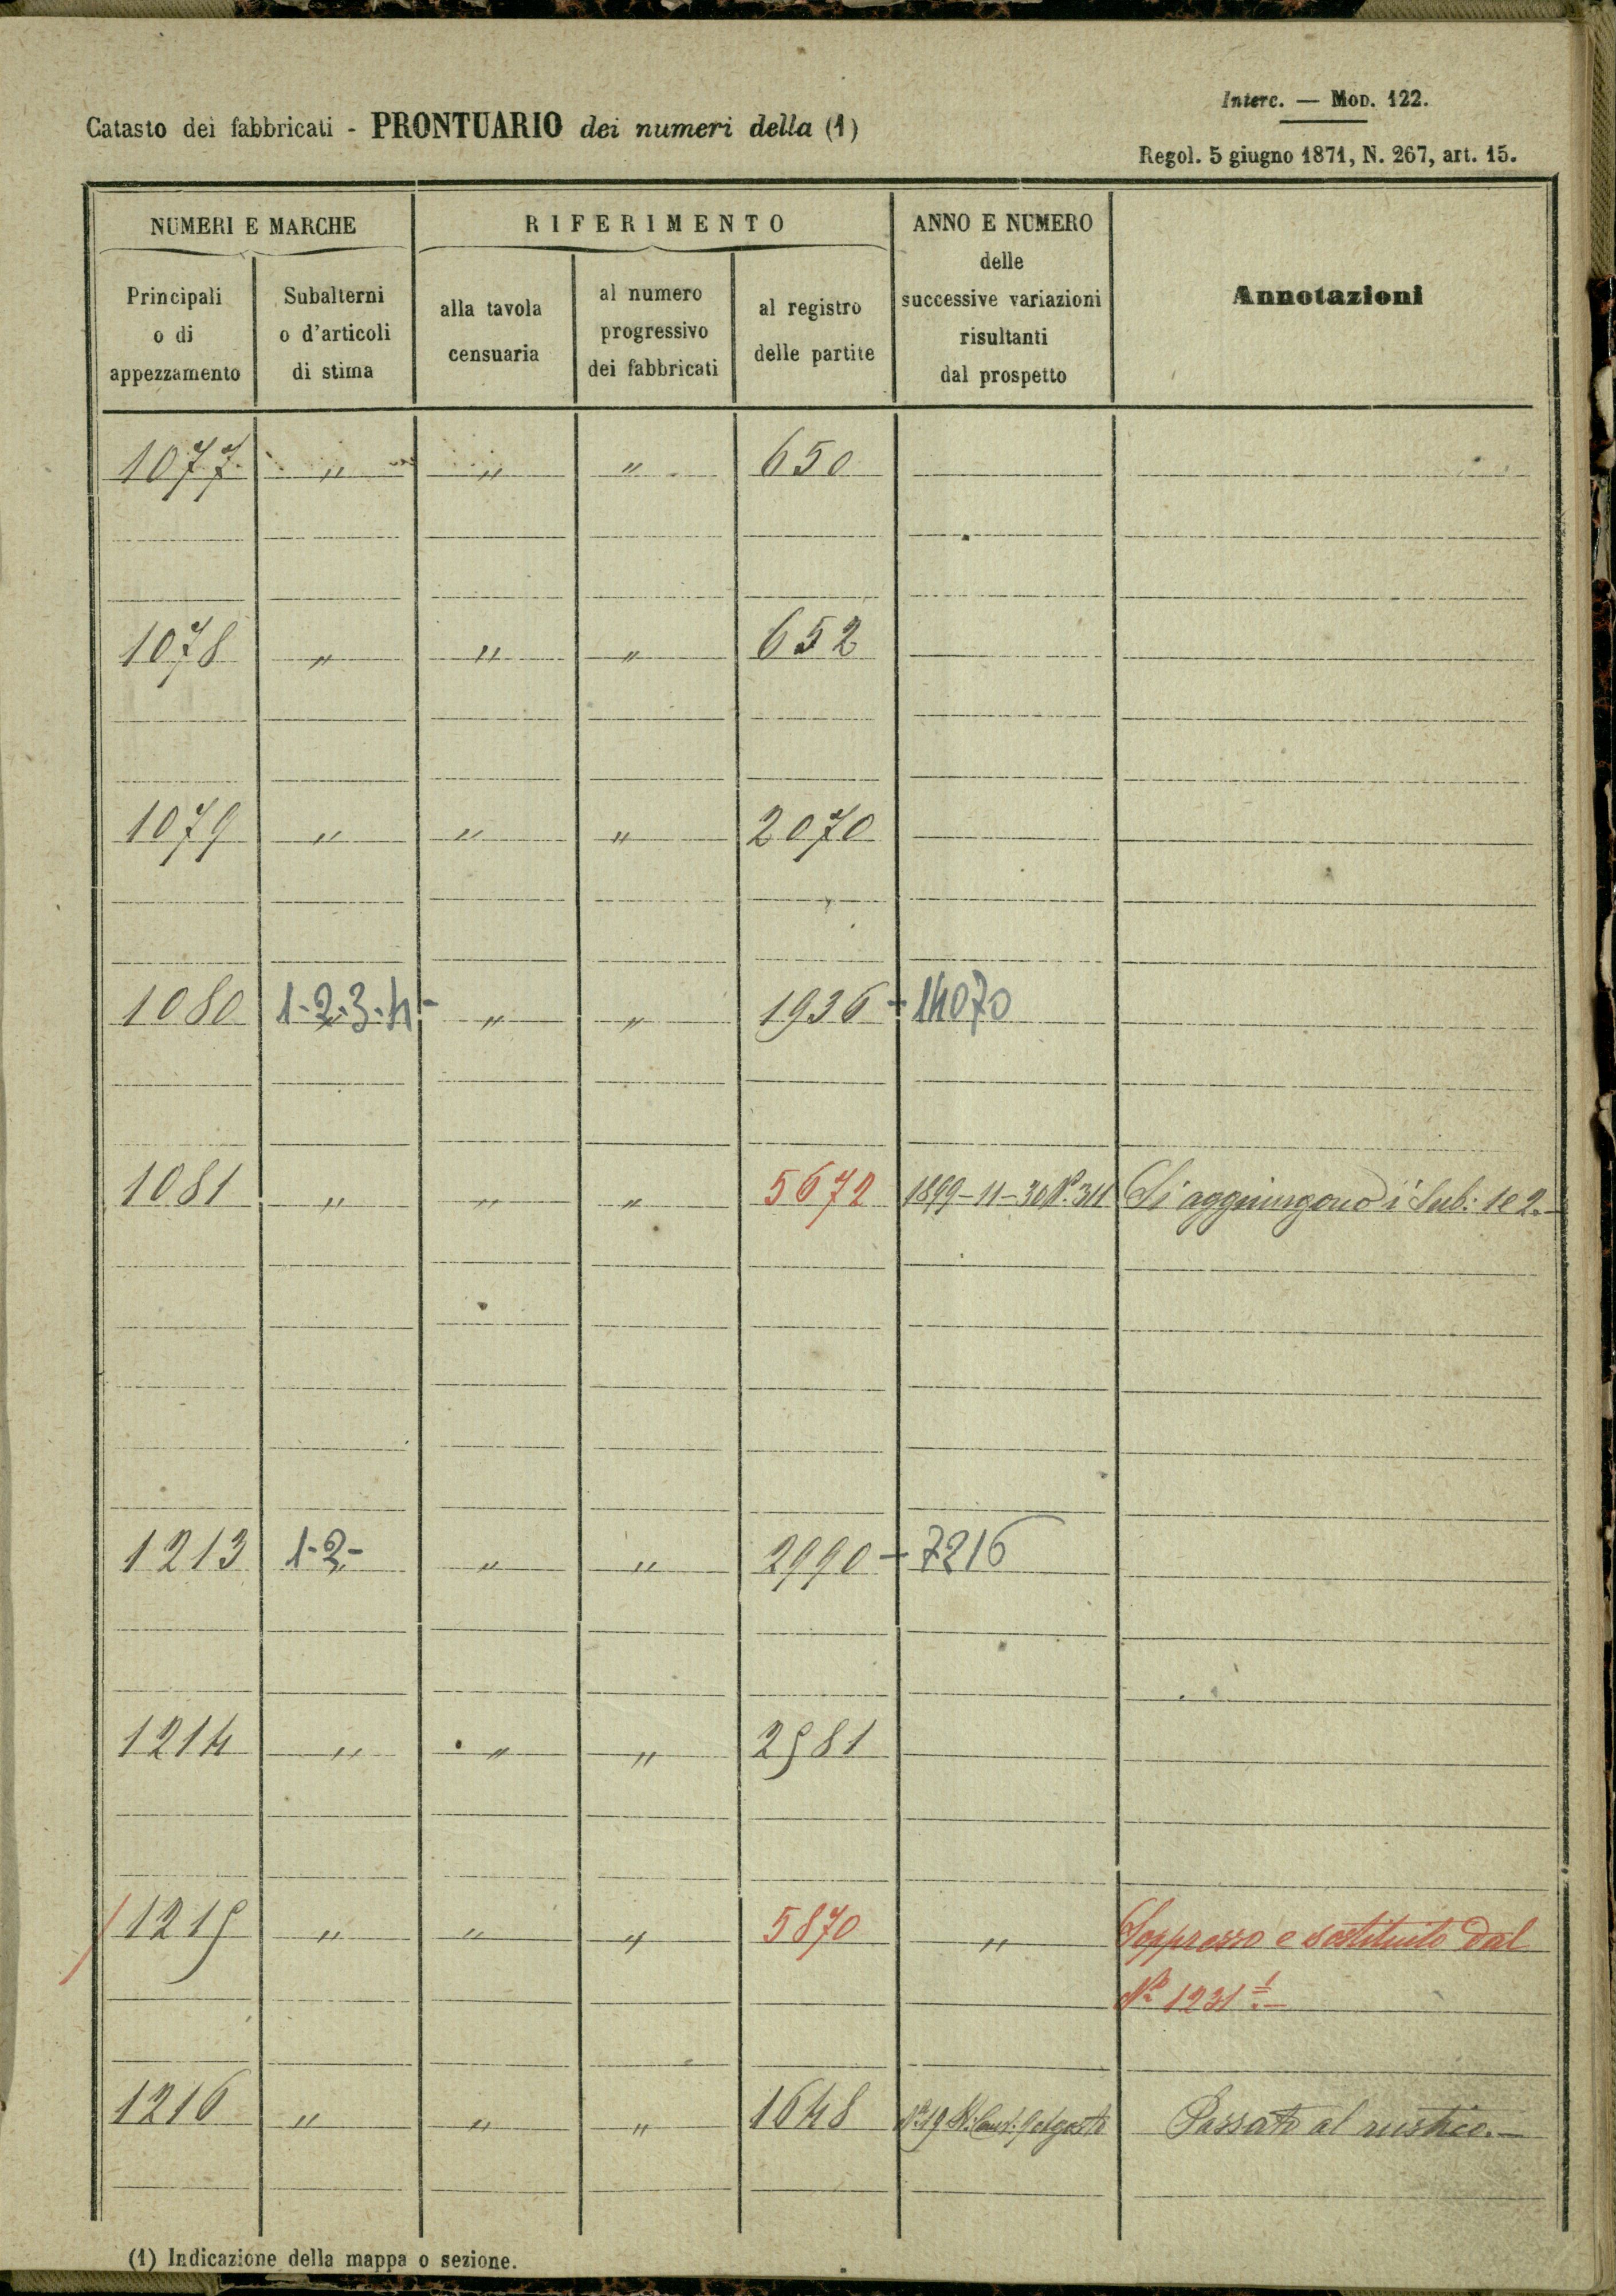 Interc. — Mod. 122.
Catasto dei fabbricati - PRONTUARIO dei numeri della (1)
Regol. 5 giugno 1871, N. 267, art. 15.
NUMERI E MARCHE
RIFERIMENTO
ANNO E NUMERO
delle
successive variazioni
risultanti
dal prospetto
Annotazioni
Principali
o di
appezzamento
Subalterni
o d'articoli
di stima
alla tavola
censuaria
al numero
progressivo
dei fabbricati
al registro
delle partite
1077 " " " 650
1078 " " " 652
1079 " " " 2070
1080 1-2-3-4- " " " 1936 - 14070
1081 " " " 5672 1899-11-30 N° 311 Si aggiungono i Sub: 1 e 2.-
1213 1-2- " " " 2990 - 7216
1214 " " " 2981
1215 " " " 5870 " Soppresso e sostituito dal
N° 1231 1/-
1216 " " " 1648 N° 19 Passato al rustico.-
(1) Indicazione della mappa o sezione.